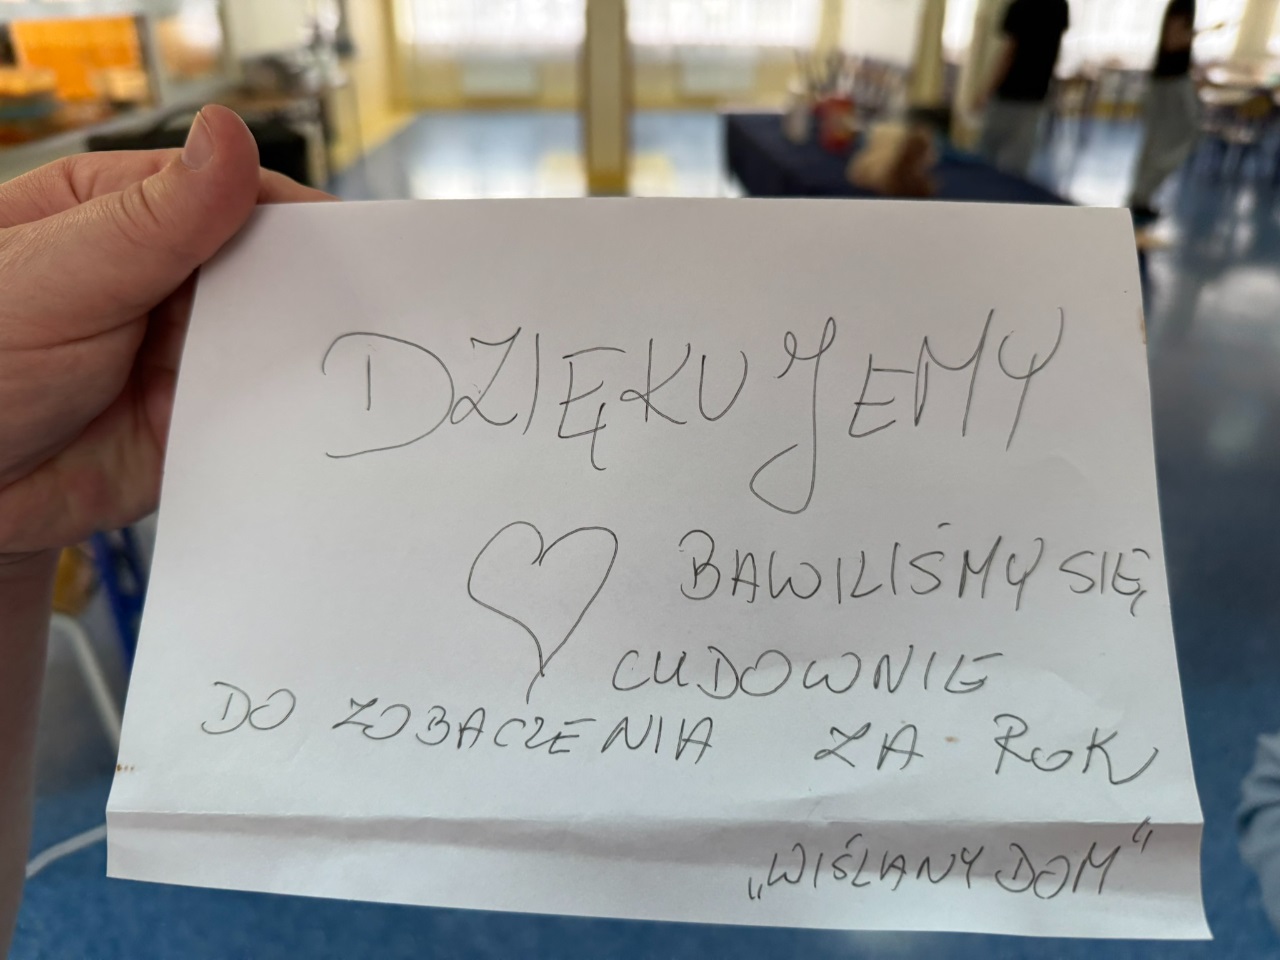 DZIĘKUJEMY
BAWILIŚMY SIĘ
CUDOWNIE
DO ZOBACZENIA ZA ROK
„WIŚLANY DOM”